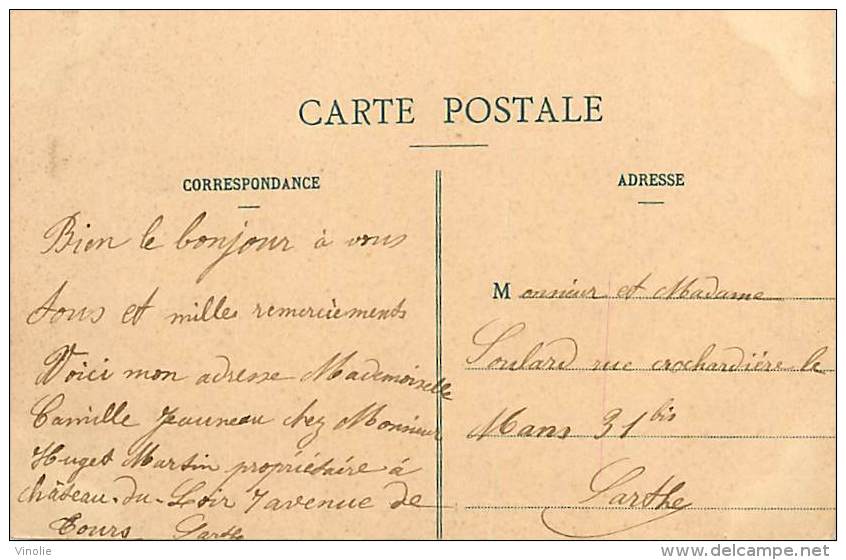 CARTE POSTALE
CORRESPONDANCE
Bien le bonjour à vous
tous et milles remerciements
Voici mon adresse Mademoiselle
Camille Jeauneau chez Monsieur
Huget Martin propriétaire à
château-du-Loir 7 avenue de
Tours Sarthe
ADRESSE
Monsieur et Madame
Soulard rue crochardière le
Mans 31 bis
Sarthe
Vinolie
delcampe.net